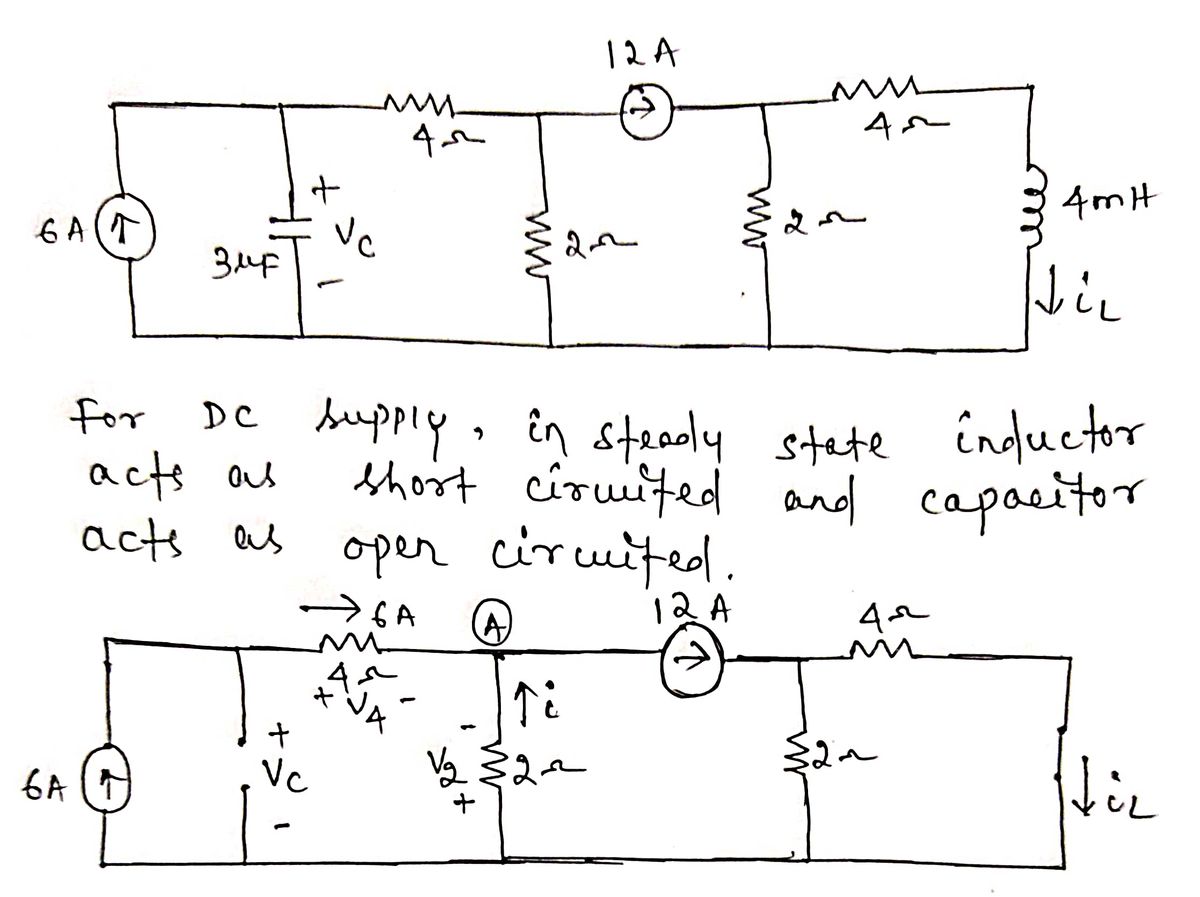 12A
4Ω
4Ω
6A
+
3μF
Vc
-
2Ω
2Ω
4mH
↓iL
For DC supply, in steady state inductor
acts as short circuited and capacitor
acts as open circuited.
→ 6A
A
12A
4Ω
4Ω
+ V4 -
↑i
6A
+
Vc
-
-
V2
+
2Ω
2Ω
↓iL